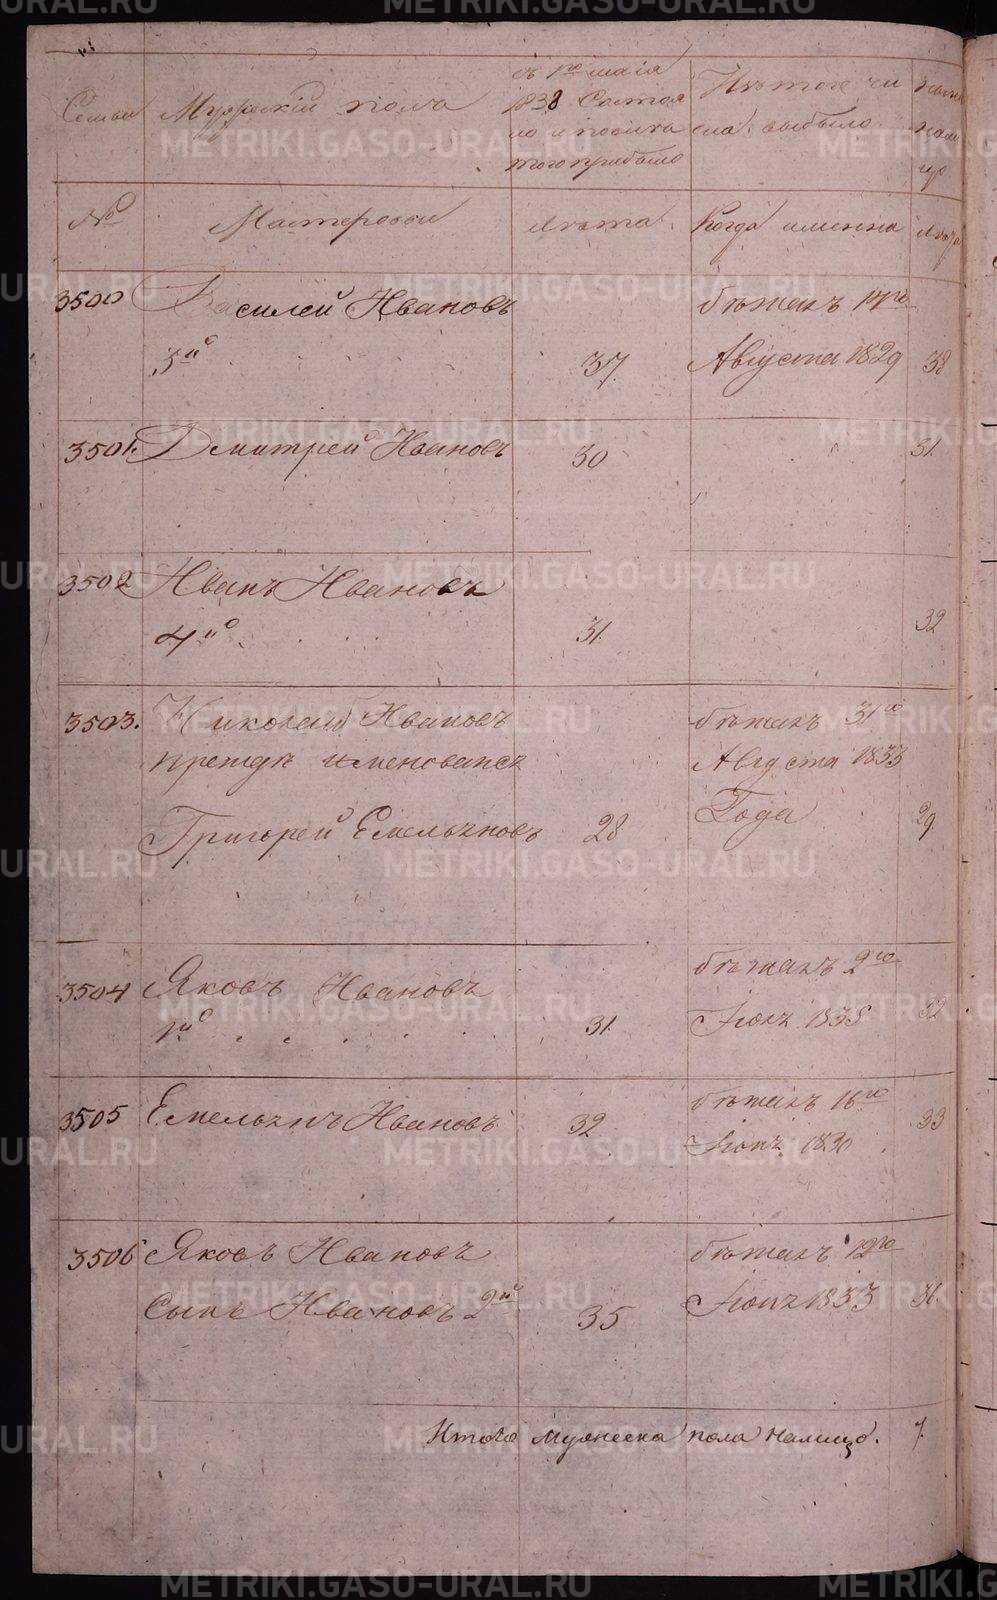 Семьи
Мужескій пола
съ 1го маія
1838 Состоя
ло и после
того прибыло
Изъ того чи
сла выбыло
ныне
нали
цо
№
Мастеровыи
лѣта.
Когда именно
лѣта
3500 Василей Ивановъ
3йс 37
бѣжалъ 14го
Августа 1829 38
3501. Дмитрей Ивановъ 30 31.
3502 Иванъ Ивановъ
4йс 31. 32
3503. Николай Ивановъ
прежде именовался
Григорей Емельяновъ 28
бѣжалъ 31го
Августа 1833
Года 29
3504 Яковъ Ивановъ
1йс 31.
бѣжалъ 2го
Іюля 1838 32
3505 Емельянъ Ивановъ 32
бѣжалъ 16го
Іюня 1830 33
3506 Яковъ Ивановъ
Сынъ Ивановъ 2йс 35
бѣжалъ 12го
Іюня 1833 36
Итого мужеска пола налицо. 7.
METRIKI.GASO-URAL.RU